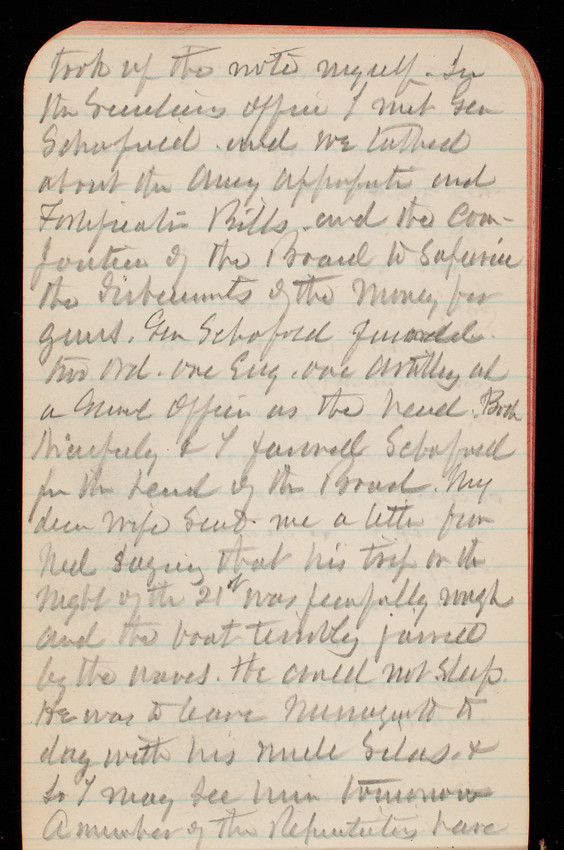 took up the note myself. In
the Secretarys office I met Gen
Schofield and we talked
about the Army Appropriati and
Fortificati Bills, and the Com-
of the Board to Supervise
the Disbursements of the Money for
guns. Gen Schofield favored
two Ord. one Eng. one Artillery and
a Officer as the head. Both
& I favored Schofield
for the head of the Board. My
dear wife sent me a letter from
Ned saying that his trip on the
night of the 21st was fearfully rough
and the boat terribly jarred
by the waves. He could not sleep.
He was to leave to
day with his uncle Silas &
so I may see him tomorrow
A number of the have